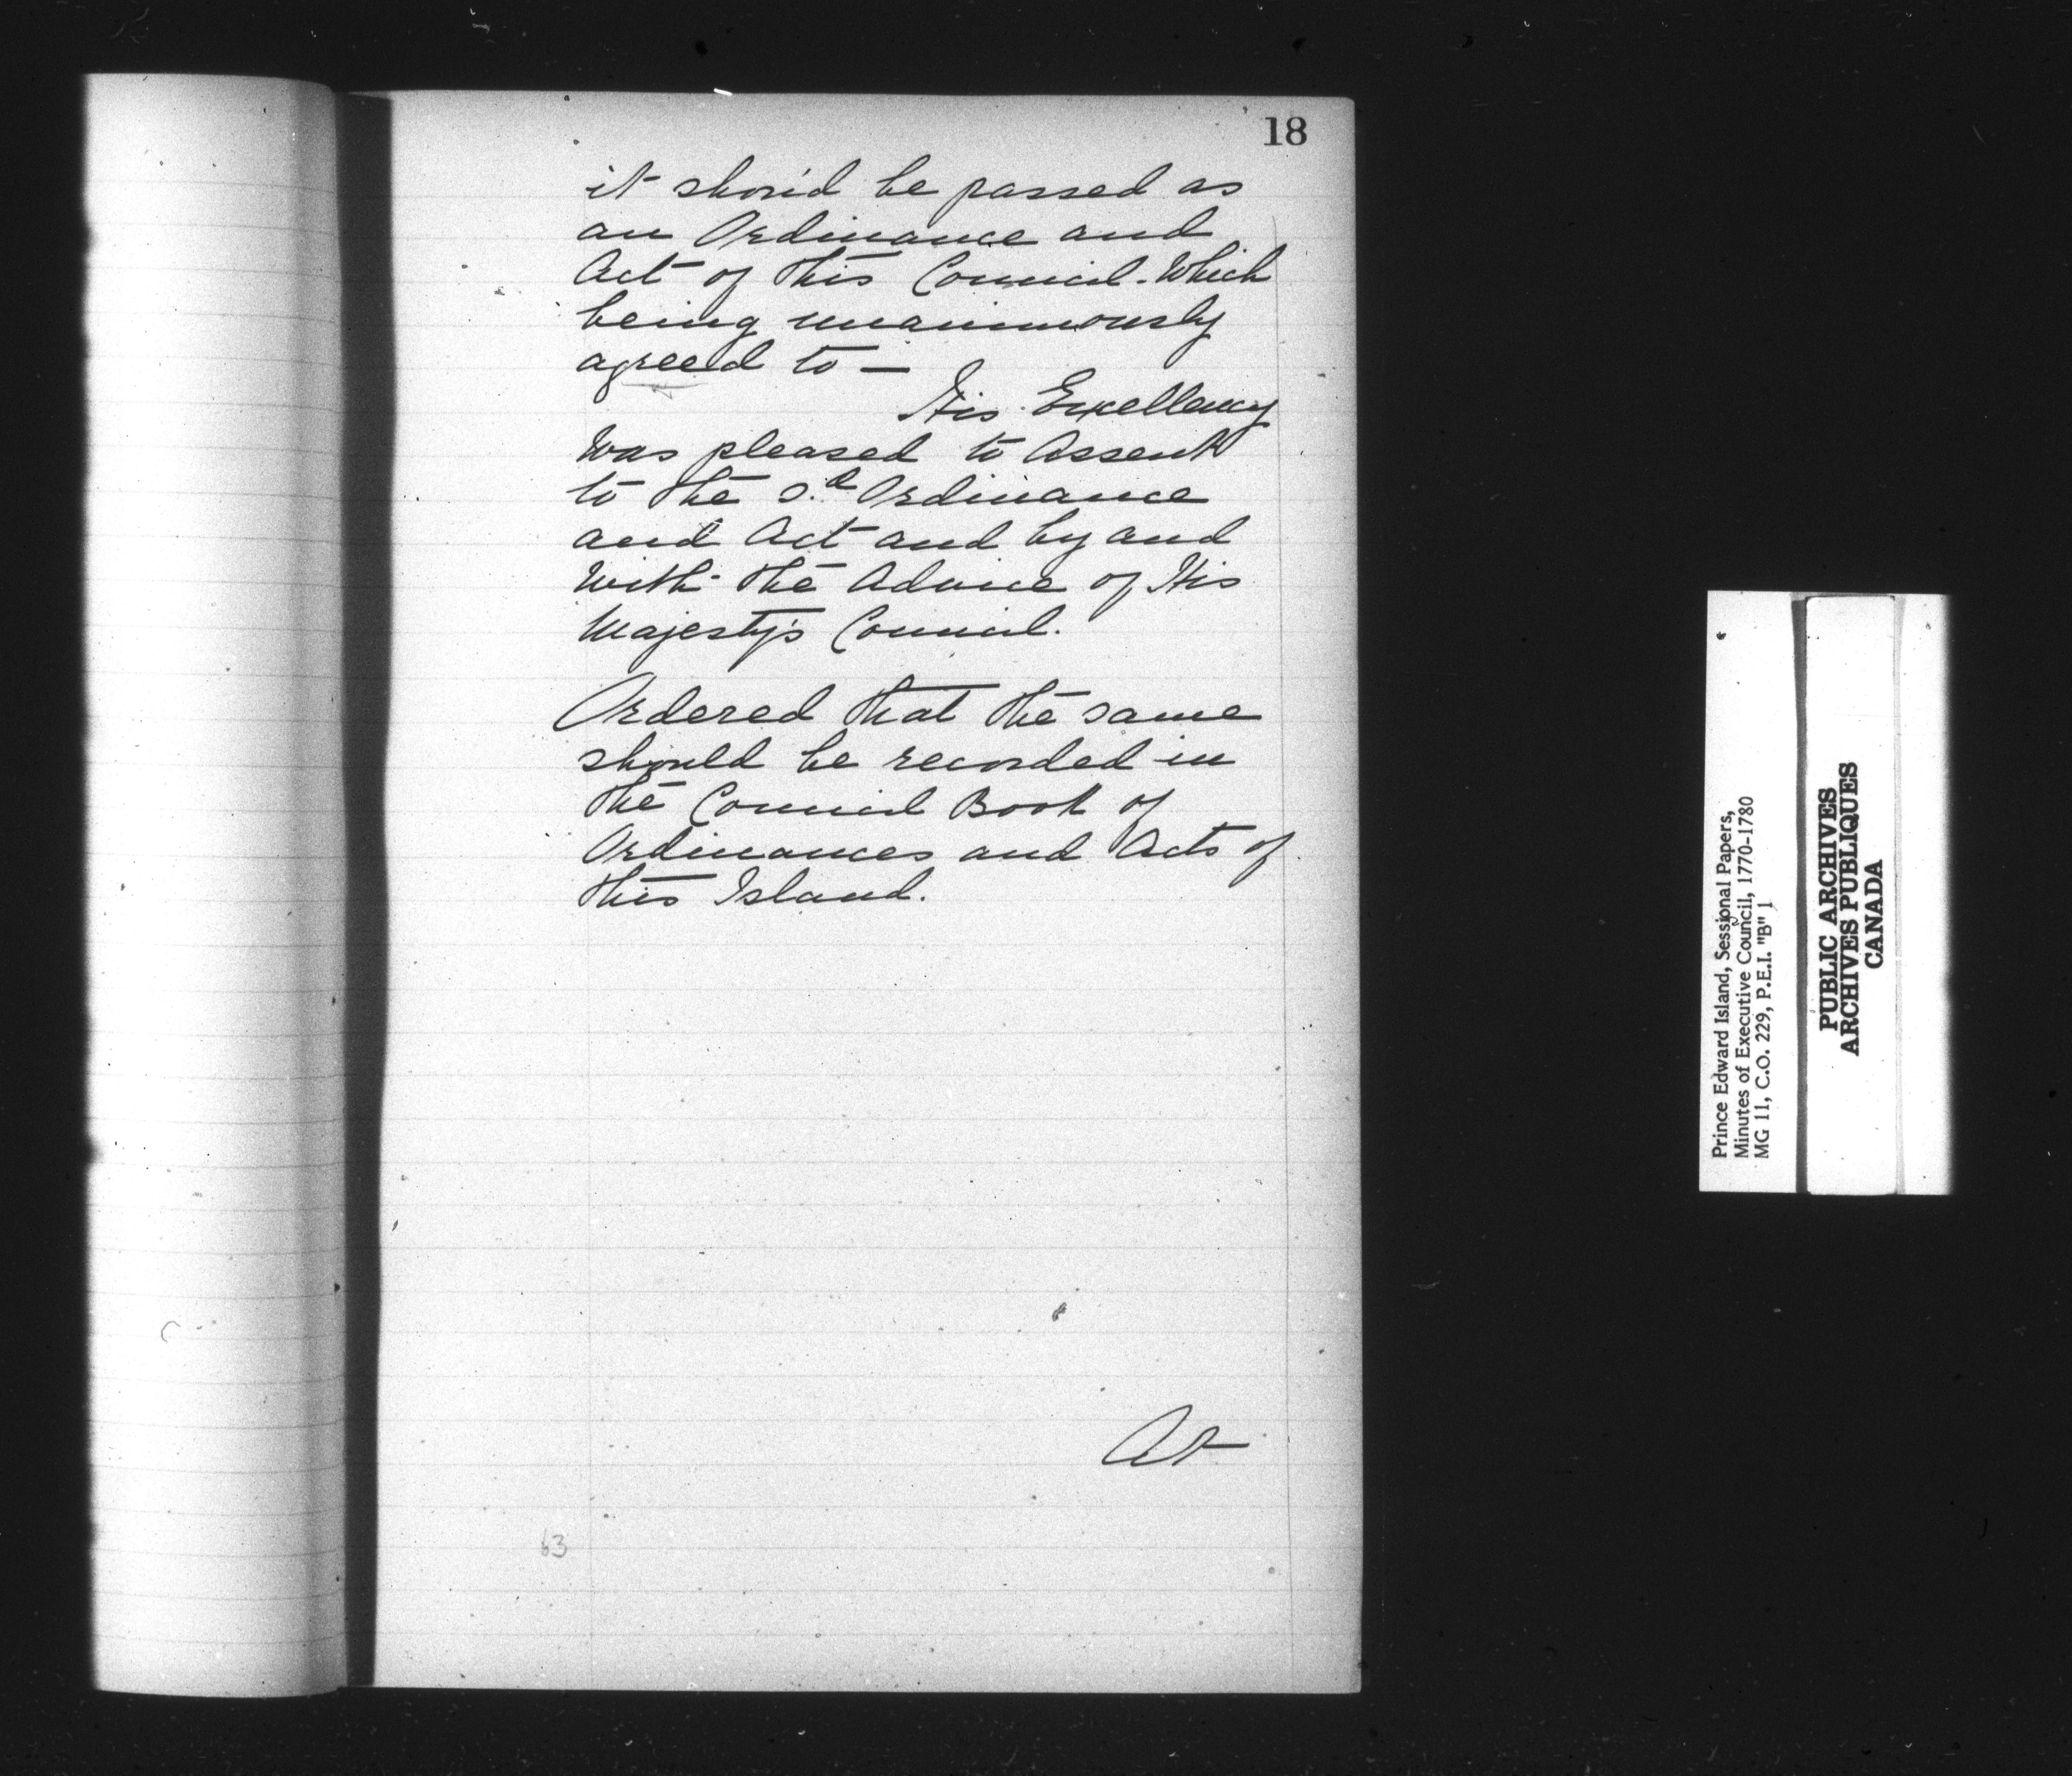 18
it shou'd be passed as
an Ordinance and
Act of this Council. Which
being unanimously
agreed to —
His Excellency
Was pleased to Assent
to the s.d Ordinance
and Act and by and
With the Advice of His
Majesty's Council.
Ordered that the same
should be recorded in
the Council Book of
Ordinances and Acts of
this Island.
At
63
Prince Edward Island, Sessional Papers,
Minutes of Executive Council, 1770-1780
MG 11, C.O. 229, P.E.I. "B" 1
PUBLIC ARCHIVES
ARCHIVES PUBLIQUES
CANADA